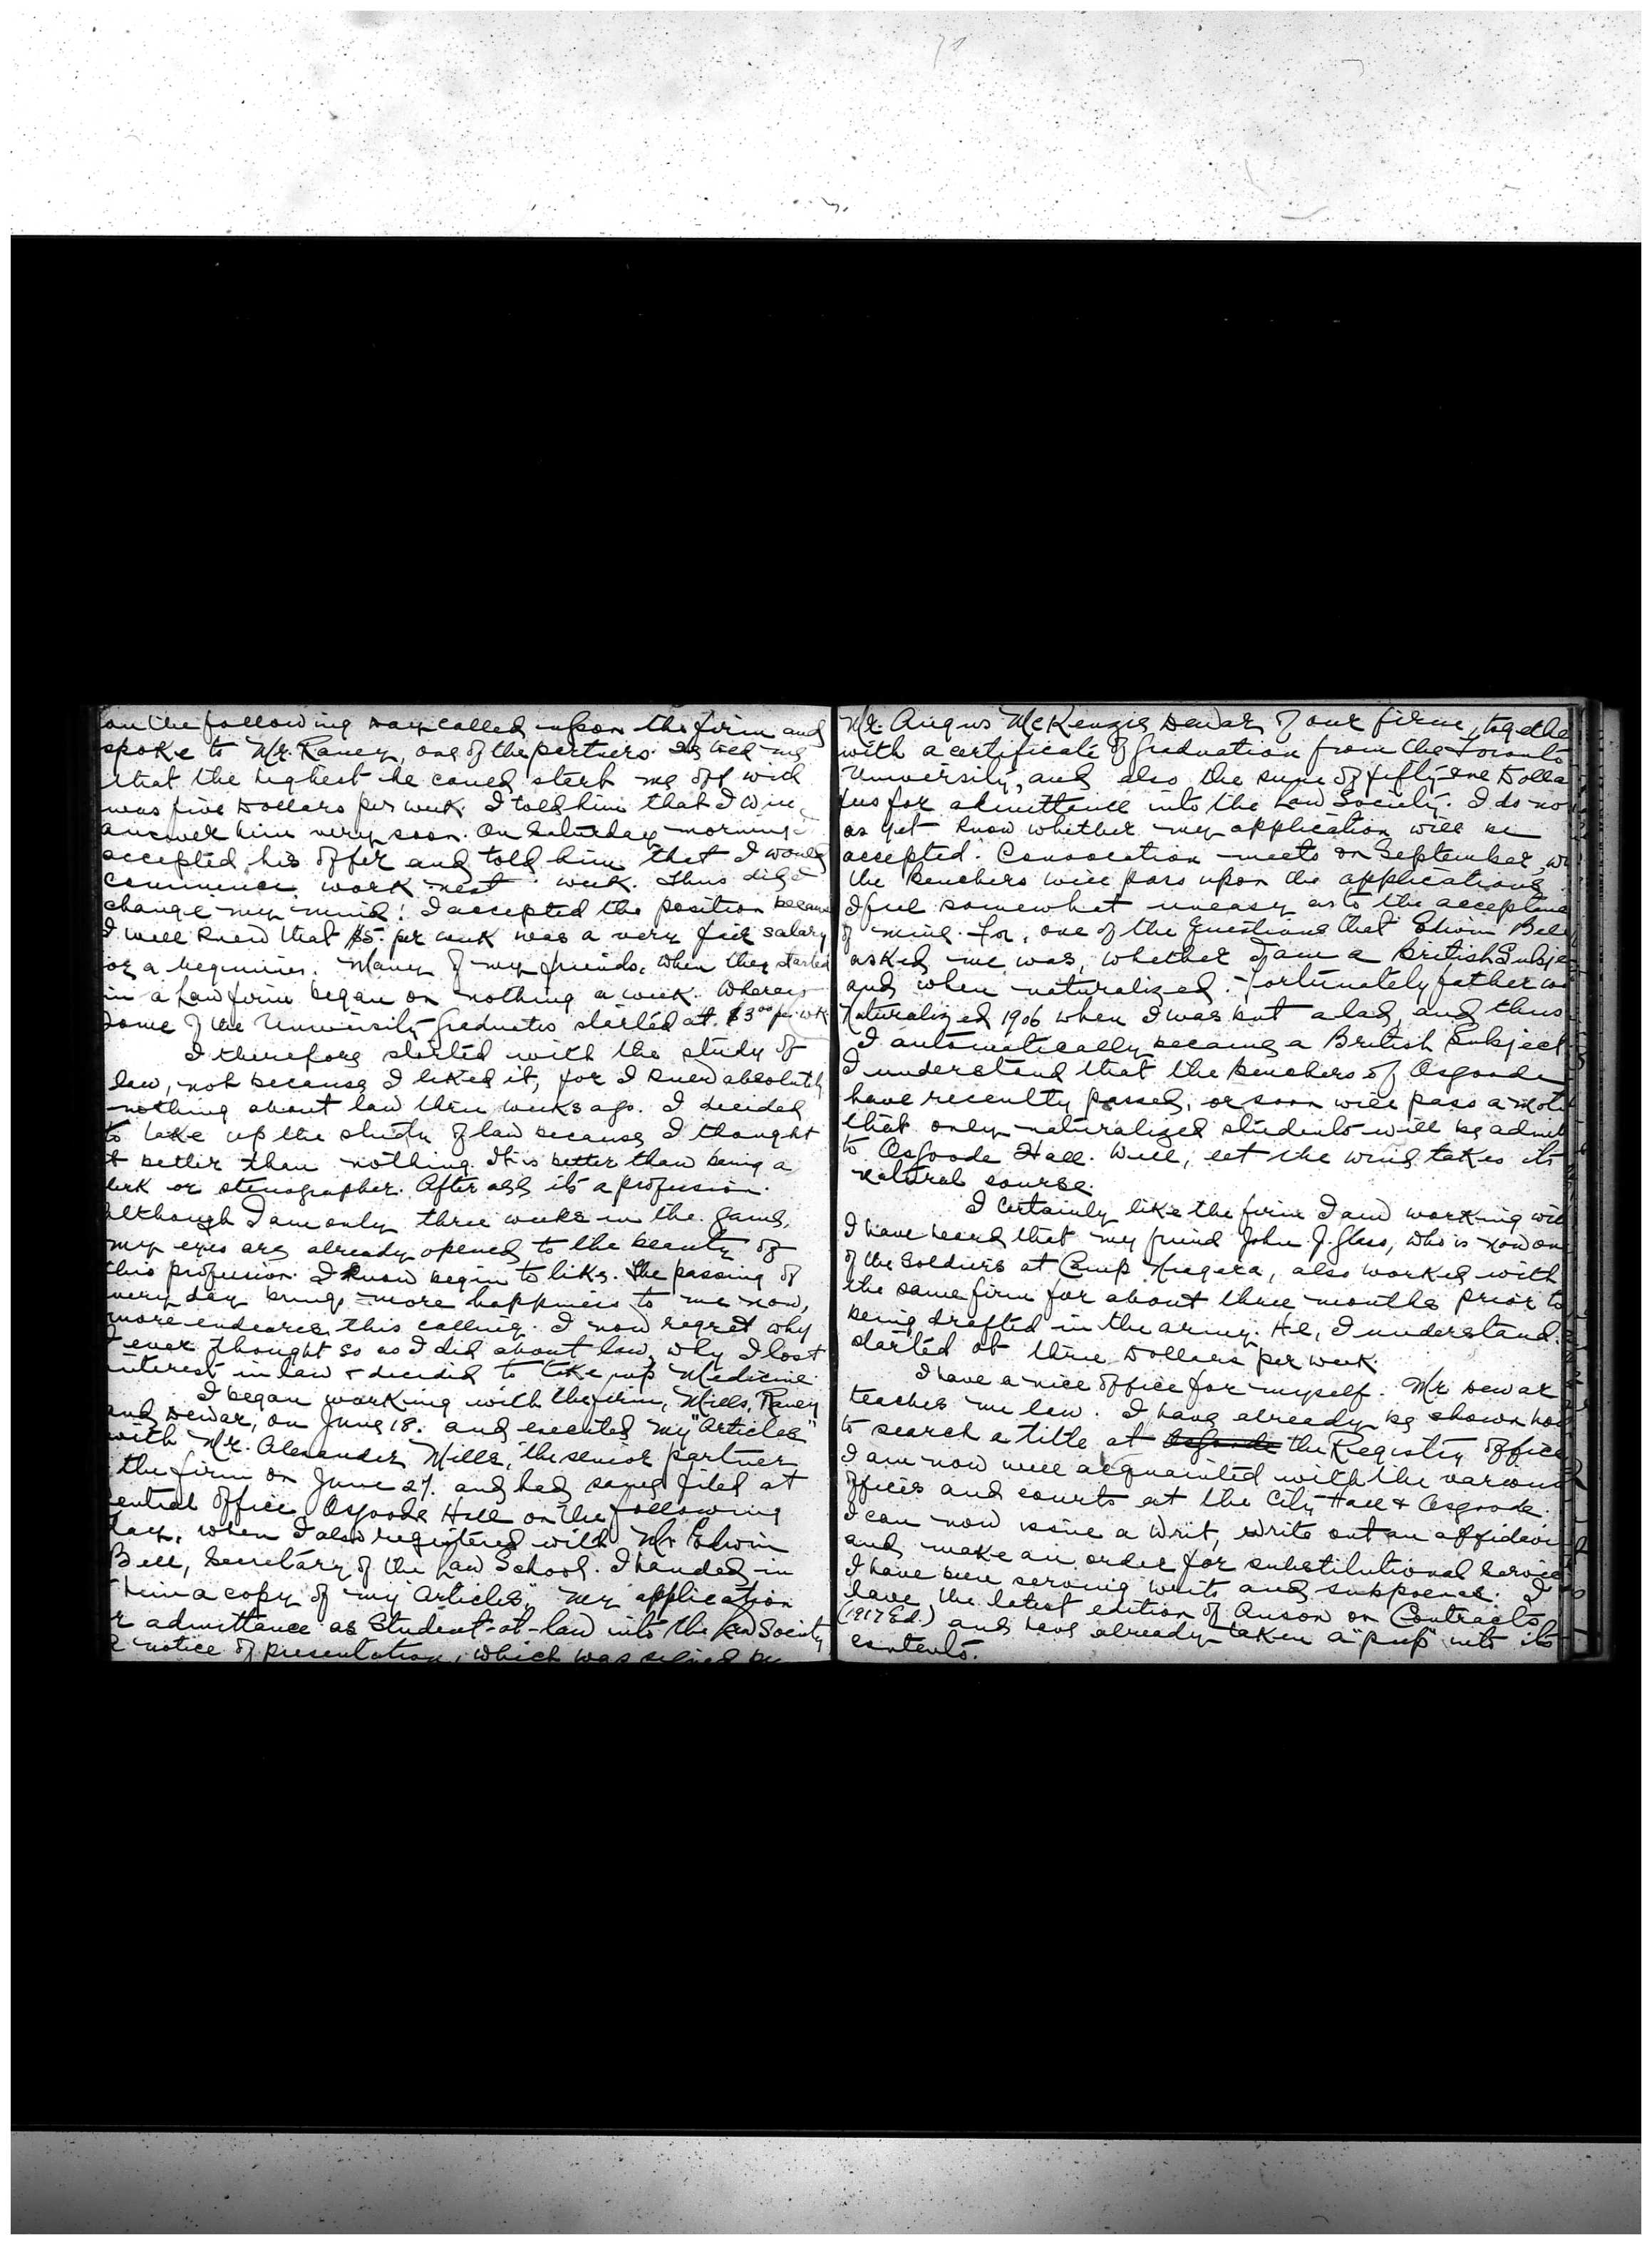 on the following day called upon the firm and
spoke to Mr. Raney, one of the partners. He told me
that the highest he could start me off with
was five Dollars per week. I told him that I will
answer him very soon. On Saturday morning I
accepted his offer and told him that I would
commence work next week. Thus did I
change my mind! I accepted the position because
I well knew that $5. per week was a very fair salary
for a beginner. Many of my friends, when they started
in a Law firm began on nothing a week. Whereas
some of the University Graduates started at $3.00 per wk
I therefore started with the study of
law, not because I liked it, for I knew absolutely
nothing about law three weeks ago. I decided
to take up the study of law because I thought
it better than nothing. It is better than being a
clerk or stenographer. After all its a profession.
Although I am only three weeks in the game,
my eyes are already opened to the beauty of
this profession. I know begin to like. The passing of
every day brings more happiness to me now,
more endeares this calling. I now regret why
I ever thought so as I did about law, why I lost
interest in law & decided to take up Medicine.
I began working with the firm, Mills, Raney
and Dewar, on June 18. and executed my "Articles"
with Mr. Alexander Mills, the senior partner
the firm on June 27. and had same filed at
Central Office, Osgoode Hall on the following
day, when I also registered with Mr. Edwin
Bell, Secretary of the Law School. I handed in
him a copy of my "Articles," my application
for admittance as Student-at-law into the Law Society
a notice of presentation, which was signed by
Mr. Angus McKenzie Dewar of our firm, togethe
with a certificate of Graduation from the Toronto
University, and also the sum of fifty-one Dolla
fees for admittance into the Law Society. I do no
as yet know whether my application will be
accepted. Convocation meets on September, w
the Benchers will pass upon the applications.
I feel somewhat uneasy as to the acceptance
of mine. For, one of the Questions that Edwin Bell
asked me was, whether I am a British Subje
and when naturalized. Fortunately father wa
Naturalized 1906 when I was but a lad, and thus
I automatically became a British Subject.
I understand that the Benchers of Osgoode
have recently passed, or soon will pass a moti
that only naturalized students will be admit
to Osgoode Hall. Well, let the wind takes its
natural course.
I certainly like the firm I am working with
I have heard that my friend John J. Glass, who is now one
of the Soldiers at Camp Niagara, also worked with
the same firm for about three months prior to
being drafted in the army. He, I understand
started at three Dollars per week.
I have a nice office for myself. Mr Dewar
teaches me law. I have already be shown how
to search a title at Osgoode the Registry Office
I am now well acquainted with the various
offices and courts at the City Hall & Osgoode.
I can now issue a Writ, write out an affidavi
and make an order for substitutional service
I have been serving writs and subpoenas. I
have the latest edition of Anson on Contracts
(1917 Ed.) and have already taken a "peep" into its
contents.